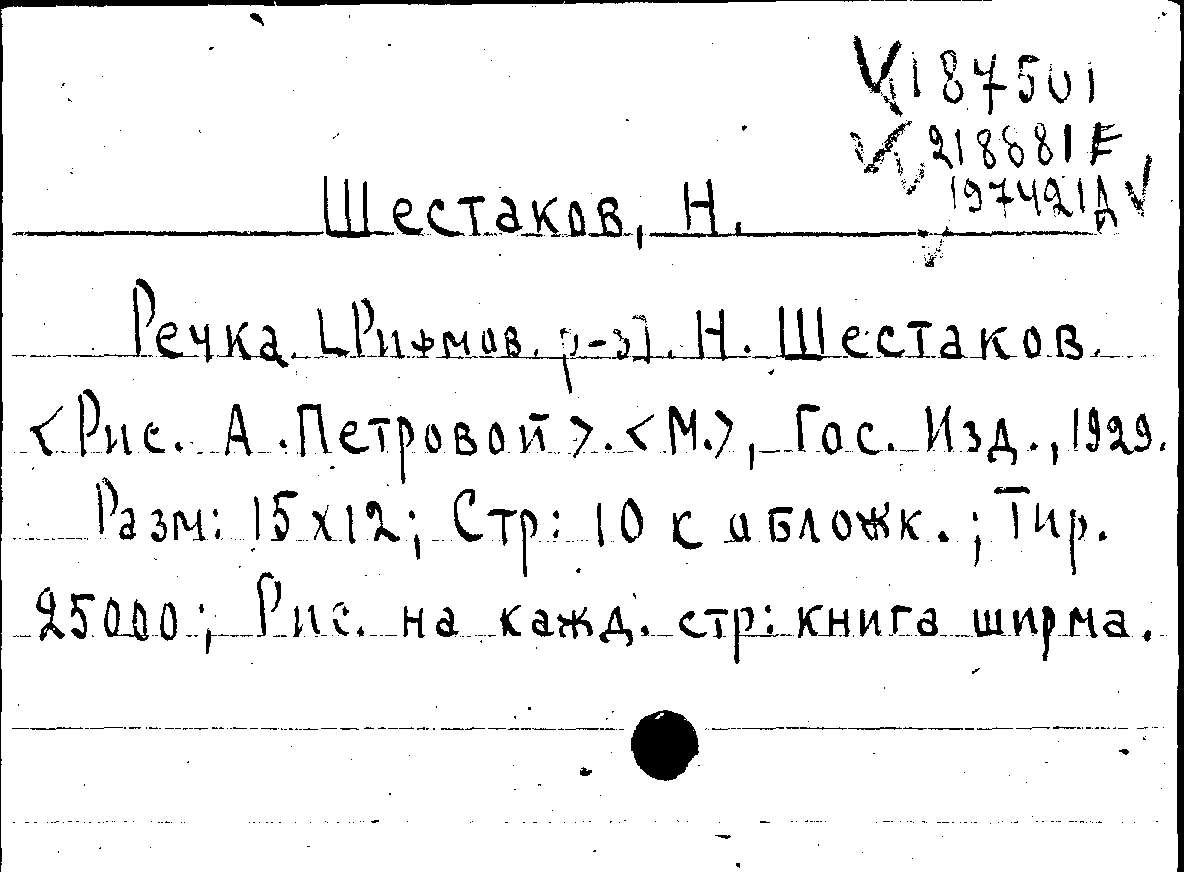 187501
218881 Е
197421Д
Шестаков, Н.
Речка. [Рифмов. р-з]. Н. Шестаков.
<Рис. А. Петровой>. <М.>, Гос. Изд., 1929.
Разм: 15х12; Стр: 10 с обложк.; Тир.
25000; Рис. на кажд. стр: книга ширма.